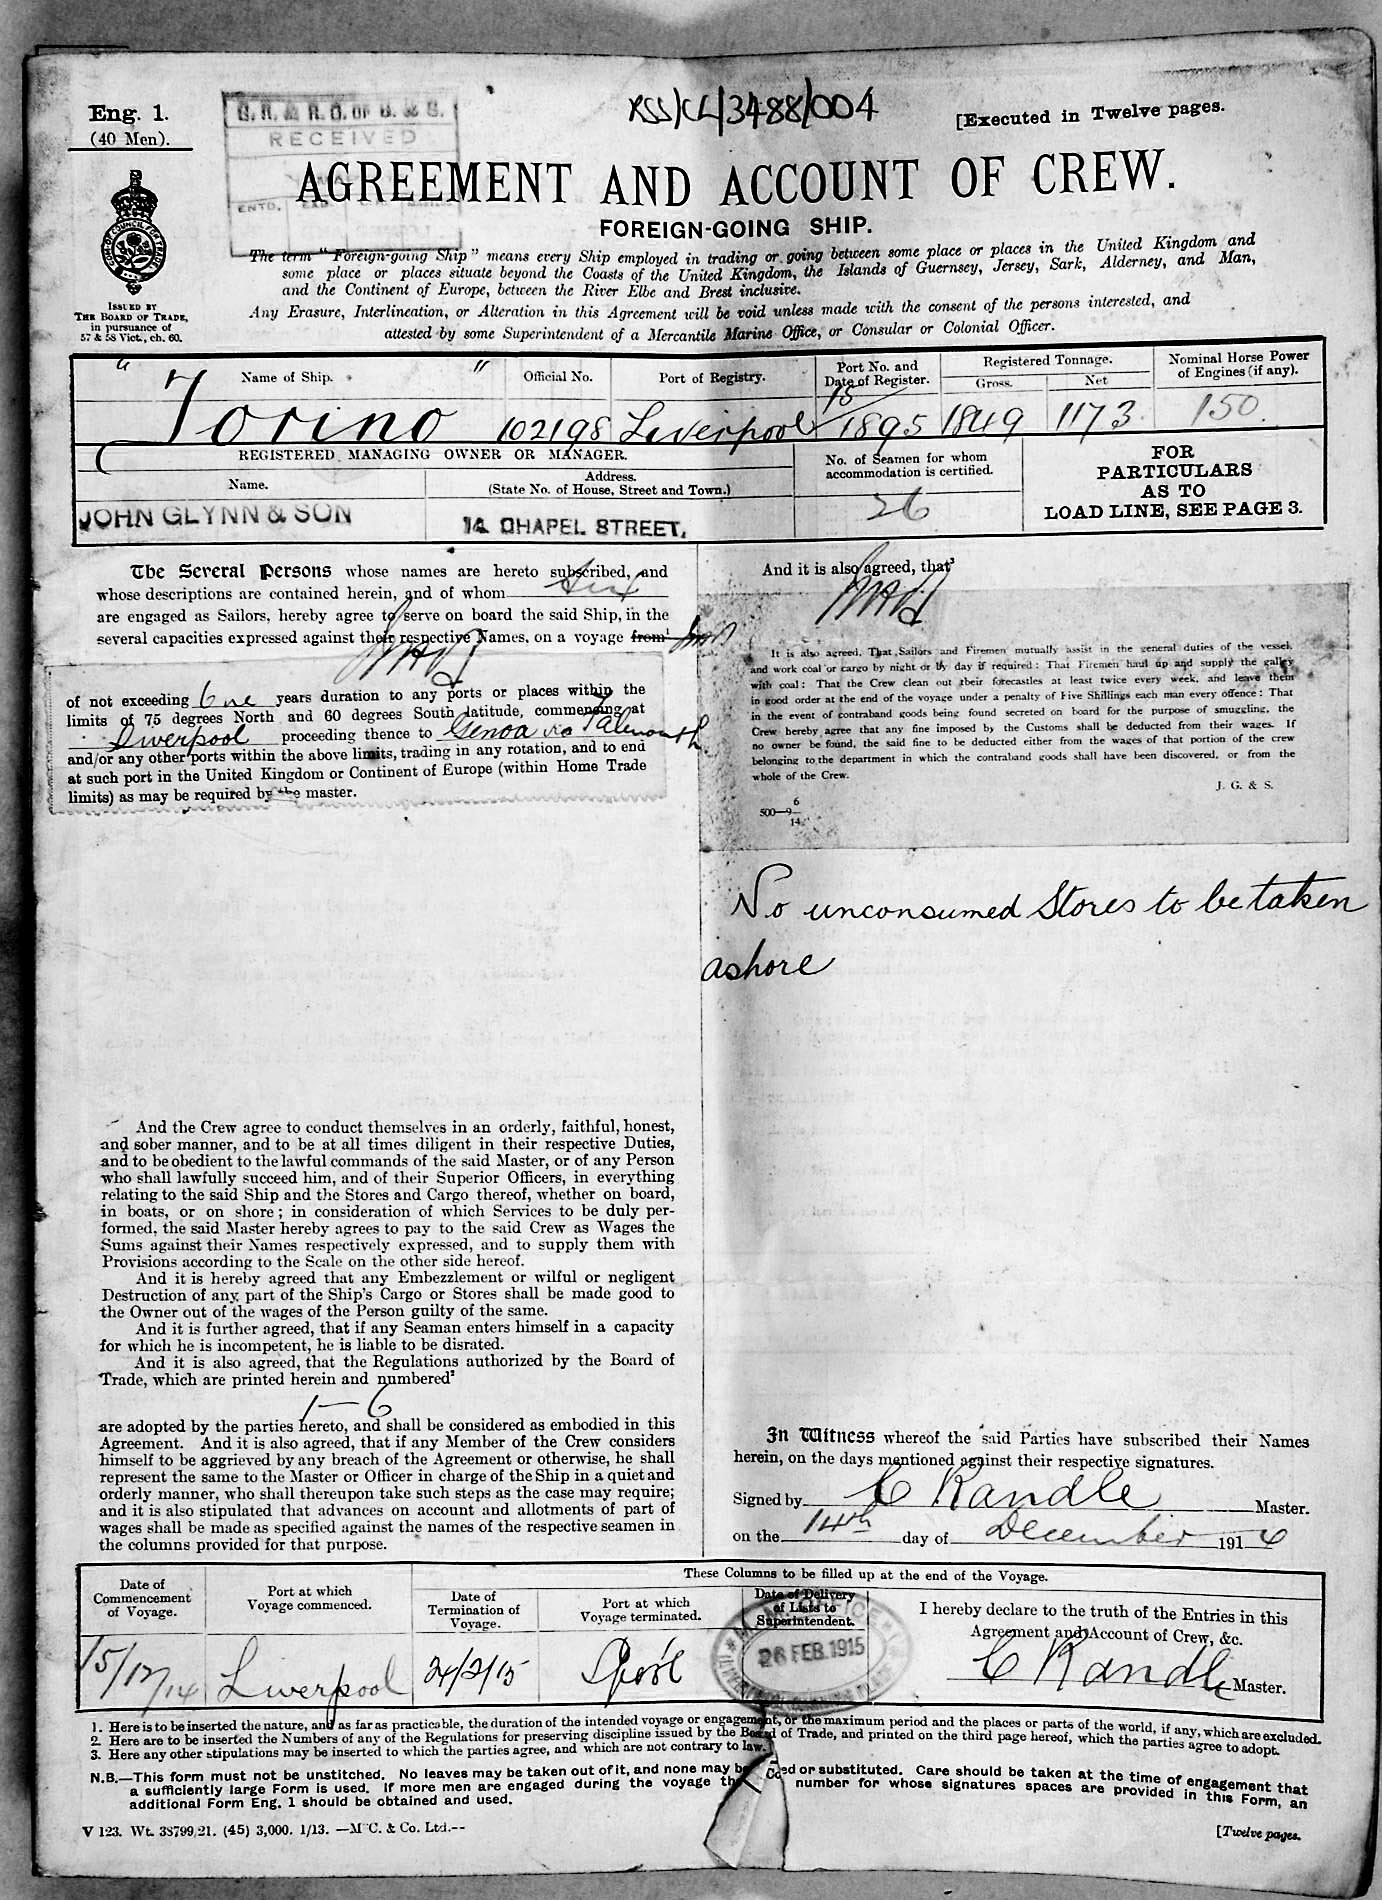 Eng. 1.
(40 Men).
RECEIVED
RSS/CL/3488/004
[Executed in Twelve pages.
AGREEMENT AND ACCOUNT OF CREW.
FOREIGN-GOING SHIP.
ISSUED BY
THE BOARD OF TRADE,
in pursuance of
57 & 58 Vict., ch. 60.
The term "Foreign-going Ship" means every Ship employed in trading or going between some place or places in the United Kingdom and
some place or places situate beyond the Coasts of the United Kingdom, the Islands of Guernsey, Jersey, Sark, Alderney, and Man,
and the Continent of Europe, between the River Elbe and Brest inclusive.
Any Erasure, Interlineation, or Alteration in this Agreement will be void unless made with the consent of the persons interested, and
attested by some Superintendent of a Mercantile Marine Office, or Consular or Colonial Officer.
Name of Ship. Official No. Port of Registry. Port No. and Date of Register. Registered Tonnage. Gross. Net Nominal Horse Power of Engines (if any).
"Torino" 102198 Liverpool 18/1895 1849 1173 150
REGISTERED MANAGING OWNER OR MANAGER.
Name. Address.
(State No. of House, Street and Town.)
No. of Seamen for whom
accommodation is certified.
JOHN GLYNN & SON 14 CHAPEL STREET, 26
FOR
PARTICULARS
AS TO
LOAD LINE, SEE PAGE 3.
The Several Persons whose names are hereto subscribed, and
whose descriptions are contained herein, and of whom six
are engaged as Sailors, hereby agree to serve on board the said Ship, in the
several capacities expressed against their respective Names, on a voyage from¹
of not exceeding One years duration to any ports or places within the
limits of 75 degrees North and 60 degrees South latitude, commencing at
Liverpool proceeding thence to Genoa via Falmouth
and/or any other ports within the above limits, trading in any rotation, and to end
at such port in the United Kingdom or Continent of Europe (within Home Trade
limits) as may be required by the master.
And the Crew agree to conduct themselves in an orderly, faithful, honest,
and sober manner, and to be at all times diligent in their respective Duties,
and to be obedient to the lawful commands of the said Master, or of any Person
who shall lawfully succeed him, and of their Superior Officers, in everything
relating to the said Ship and the Stores and Cargo thereof, whether on board,
in boats, or on shore; in consideration of which Services to be duly per-
formed, the said Master hereby agrees to pay to the said Crew as Wages the
Sums against their Names respectively expressed, and to supply them with
Provisions according to the Scale on the other side hereof.
And it is hereby agreed that any Embezzlement or wilful or negligent
Destruction of any part of the Ship's Cargo or Stores shall be made good to
the Owner out of the wages of the Person guilty of the same.
And it is further agreed, that if any Seaman enters himself in a capacity
for which he is incompetent, he is liable to be disrated.
And it is also agreed, that the Regulations authorized by the Board of
Trade, which are printed herein and numbered²
1-6
are adopted by the parties hereto, and shall be considered as embodied in this
Agreement. And it is also agreed, that if any Member of the Crew considers
himself to be aggrieved by any breach of the Agreement or otherwise, he shall
represent the same to the Master or Officer in charge of the Ship in a quiet and
orderly manner, who shall thereupon take such steps as the case may require;
and it is also stipulated that advances on account and allotments of part of
wages shall be made as specified against the names of the respective seamen in
the columns provided for that purpose.
And it is also agreed, that³
It is also agreed, That Sailors and Firemen mutually assist in the general duties of the vessel,
and work coal or cargo by night or by day if required: That Firemen haul up and supply the galley
with coal: That the Crew clean out their forecastles at least twice every week, and leave them
in good order at the end of the voyage under a penalty of Five Shillings each man every offence: That
in the event of contraband goods being found secreted on board for the purpose of smuggling, the
Crew hereby agree that any fine imposed by the Customs shall be deducted from their wages. If
no owner be found, the said fine to be deducted either from the wages of that portion of the crew
belonging to the department in which the contraband goods shall have been discovered, or from the
whole of the Crew.
J. G. & S.
No unconsumed Stores to be taken
ashore
In Witness whereof the said Parties have subscribed their Names
herein, on the days mentioned against their respective signatures.
Signed by C Randle Master.
on the 14th day of December 1914
These Columns to be filled up at the end of the Voyage.
Date of
Commencement
of Voyage.
Port at which
Voyage commenced.
Date of
Termination of
Voyage.
Port at which
Voyage terminated.
Date of Delivery
of Lists to
Superintendent.
I hereby declare to the truth of the Entries in this
Agreement and Account of Crew, &c.
15/12/14 Liverpool 24/2/15 26 FEB. 1915 C Randle Master.
1. Here is to be inserted the nature, and as far as practicable, the duration of the intended voyage or engagement, or the maximum period and the places or parts of the world, if any, which are excluded.
2. Here are to be inserted the Numbers of any of the Regulations for preserving discipline issued by the Board of Trade, and printed on the third page hereof, which the parties agree to adopt.
3. Here any other stipulations may be inserted to which the parties agree, and which are not contrary to law.
N.B.—This form must not be unstitched. No leaves may be taken out of it, and none may be added or substituted. Care should be taken at the time of engagement that
a sufficiently large Form is used. If more men are engaged during the voyage than the number for whose signatures spaces are provided in this Form, an
additional Form Eng. 1 should be obtained and used.
V 123. Wt. 38799/21. (45) 3,000. 1/13. —M'C. & Co. Ltd.--
[Twelve pages.